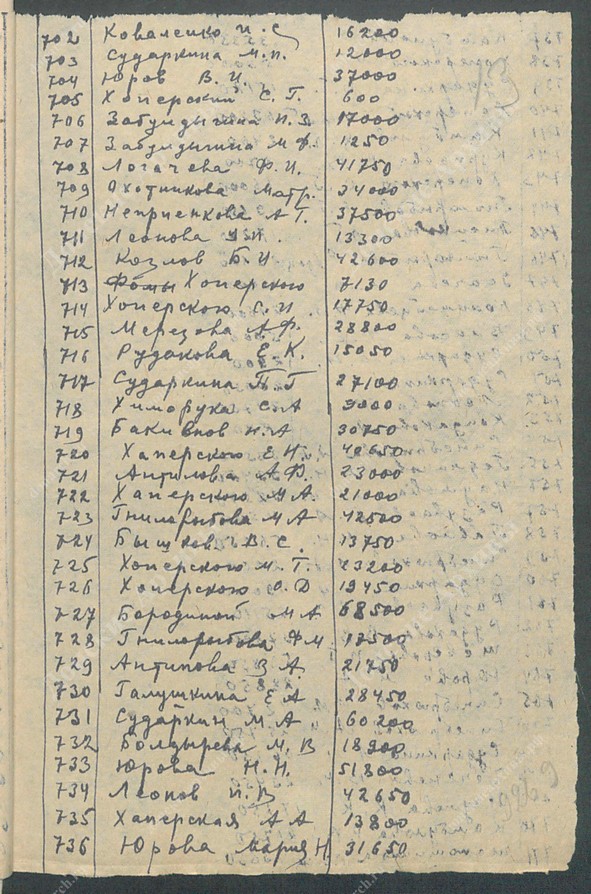 702 Коваленко И. С 16200
703 Сударкина М. П. 12000
704 Юров В. И. 37000
705 Хоперский С. Г. 600
706 Забулдыгина И. З. 17000
707 Забулдыгина М Ф. 1250
708 Логачева Ф. И. 41750
709 Охотникова Матр. 34000
710 Неприенкова А Т. 37500
711 Леонова 13300
712 Козлов Б. И 42600
713 Фомы Хоперского 7130
714 Хоперского С. И 17750
715 Мерезова А Ф. 28800
716 Рудакова Е К. 15050
717 Сударкина П Г 27100
718 Химорука С. А 3000
719 Н. А 30750
720 Хаперского Е Н. 42650
721 Антипова А Ф. 23000
722 Хаперского М А. 21000
723 Гнилорыбова М А 42500
724 Быцков В. С. 13750
725 Хоперского М. Т. 23200
726 Хоперского О. Д 19450
727 Бородиной М А 68500
728 Гнилорыбова Ф М. 12500
729 Антипова В А. 21750
730 Галушкина Е А 28450
731 Сударкин М А 60200
732 Болдырева М. В 18900
733 Юрова Н. Н. 51800
734 Леонов И. В 42650
735 Хаперская А А 13800
736 Юрова Мария Н 31650